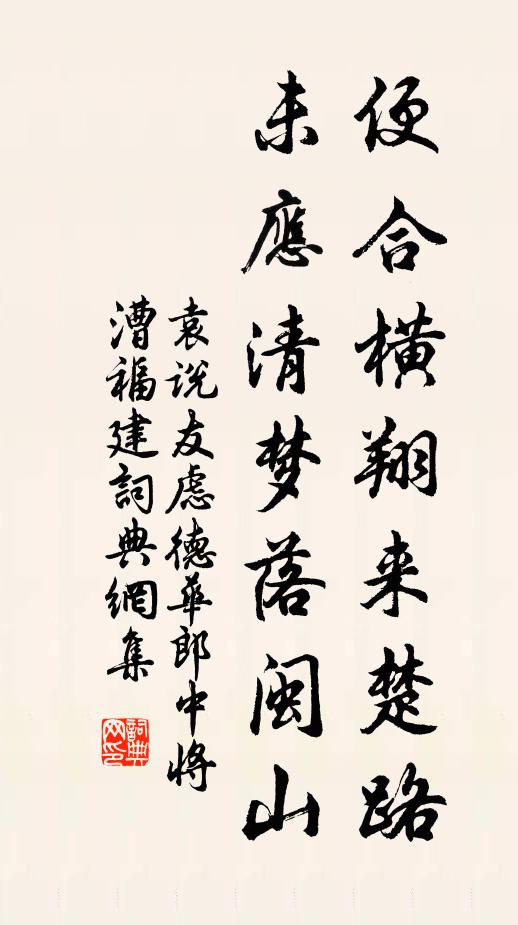 便合横翔来楚路
未應清梦落闽山
袁说友虑德华郎中将
漕福建詞典網集
詞典网印